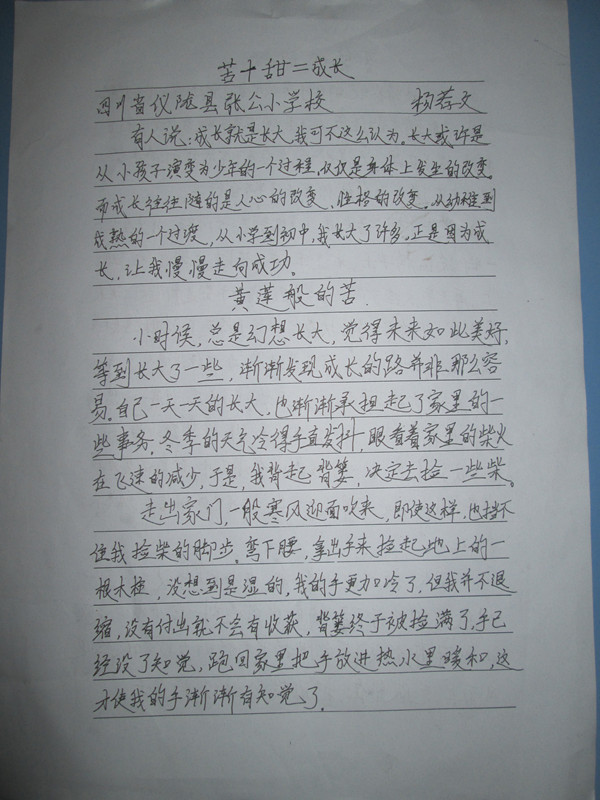 苦+甜=成长
四川省仪陇县张公小学校 杨蓉文
有人说:成长就是长大,我可不这么认为。长大或许是
从小孩子演变为少年的一个过程,仅仅是身体上发生的改变。
而成长往往随的是人心的改变、性格的改变。从幼稚到
成熟的一个过渡,从小学到初中,我长大了许多。正是因为成
长,让我慢慢走向成功。
黄莲般的苦.
小时候,总是幻想长大,觉得未来如此美好,
等到长大了一些,渐渐发现成长的路并非那么容
易。自己一天一天的长大,也渐渐承担起了家里的一
些事务,冬季的天气冷得手直发抖,眼看着家里的柴火
在飞速的减少,于是,我背起背篓,决定去捡一些柴。
走出家门,一般寒风迎面吹来,即使这样,也挡不
住我捡柴的脚步。弯下腰,拿出手来捡起地上的一
根木桩,没想到是湿的,我的手更加冷了,但我并不退
缩,没有付出就不会有收获,背篓终于被捡满了,手已
经没了知觉,跑回家里把手放进热水里暖和,这
才使我的手渐渐有知觉了.